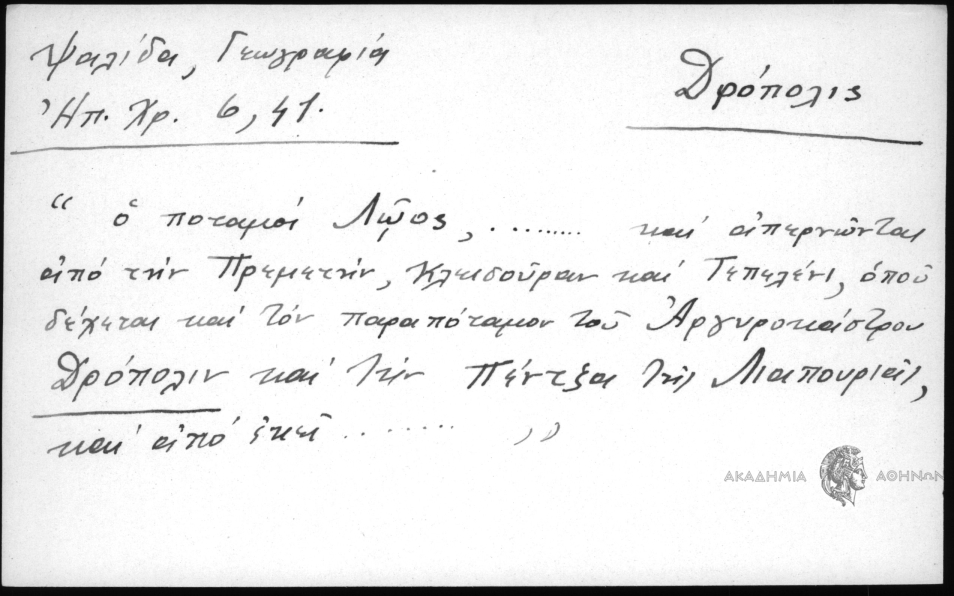 Ψαλίδα, Γεωγραφία
Ἠπ. Χρ. 6, 41.
Δρόπολις
“ ὁ ποταμοί Λῷος, ......... καί ἀπερνῶνται
ἀπό τήν Πρεμετήν, Κλεισοῦραν καί Τεπελένι, ὁποῦ
δέχεται καί τόν παραπόταμον τοῦ Ἀργυροκάστρου
Δρόπολιν καί τήν Πέντζα τῆς Λιαπουριᾶς,
καί ἀπό ἐκεῖ ......... ”
ΑΚΑΔΗΜΙΑ ΑΘΗΝΩΝ